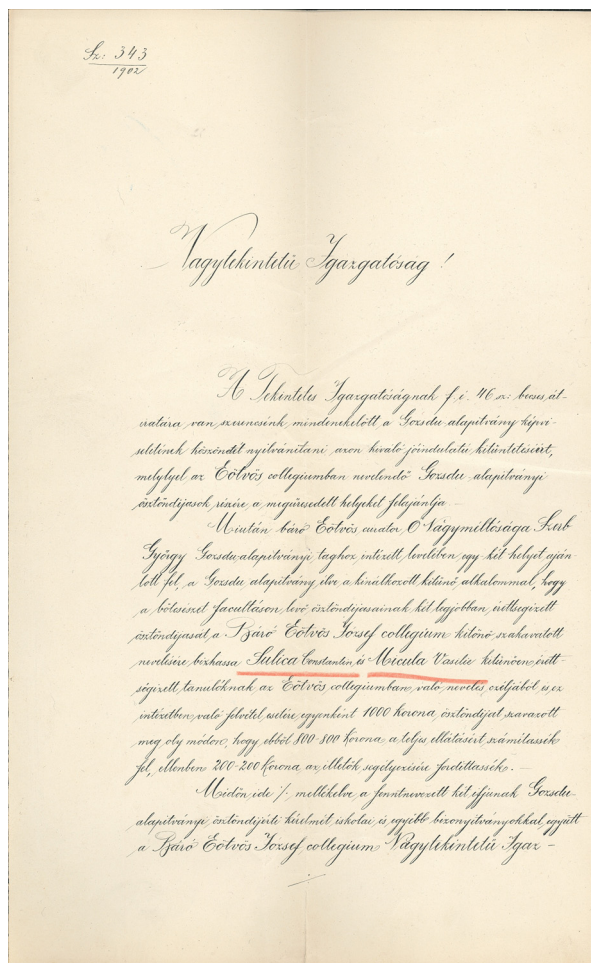 Sz: 343
1902
Nagytekintetű Igazgatóság!
A Tekintetes Igazgatóságnak f. i. 46 sz: becses, át-
iratára van szerencsénk mindenekelőtt a Gozsdu alapítvány képvi-
seletének köszönetét nyilvánítani azon kiváló jóindulatú kitüntetésért,
melylyel az Eötvös collegiumban nevelendő Gozsdu-alapítványi
ösztöndíjasok részére, a megüresedett helyeket felajánlja. -
Miután báró Eötvös curator, Ő Nagyméltósága Szerb
György Gozsdu-alapítványi taghoz, intézett, levelében, egy-két helyet aján-
lott fel, a Gozsdu alapítvány élve a kínálkozott kitünő alkalommal, hogy
a bölcsészet facultáson, levő ösztöndíjasainak két legjobban, érettségizett
ösztöndíjasát, a Báró Eötvös József collegium kitünő, szakavatott
nevelésére bízhassa Sulica Constantin és Micula Vasilie kitünően, érett-
ségizett tanulóknak az Eötvös collegiumban, való, nevelés, czéljából és, ez
intézetben, való felvétel, esetére, egyenként 1000 korona, ösztöndíjat, szavazott
meg oly módon, hogy ebből 800-800 korona, a teljes, ellátásért, számítassék
fel, ellenben 200-200 korona, az, illetők, segélyezésére fordíttassék. -
Midőn ide ·/· mellékelve, a fenntnevezett két ifjunak Gozsdu-
alapítványi, ösztöndíjérti kérelmét, iskolai, és, egyébb bizonyítványokkal, együtt
a Báró Eötvös József collegium Nagytekintetű Igaz-